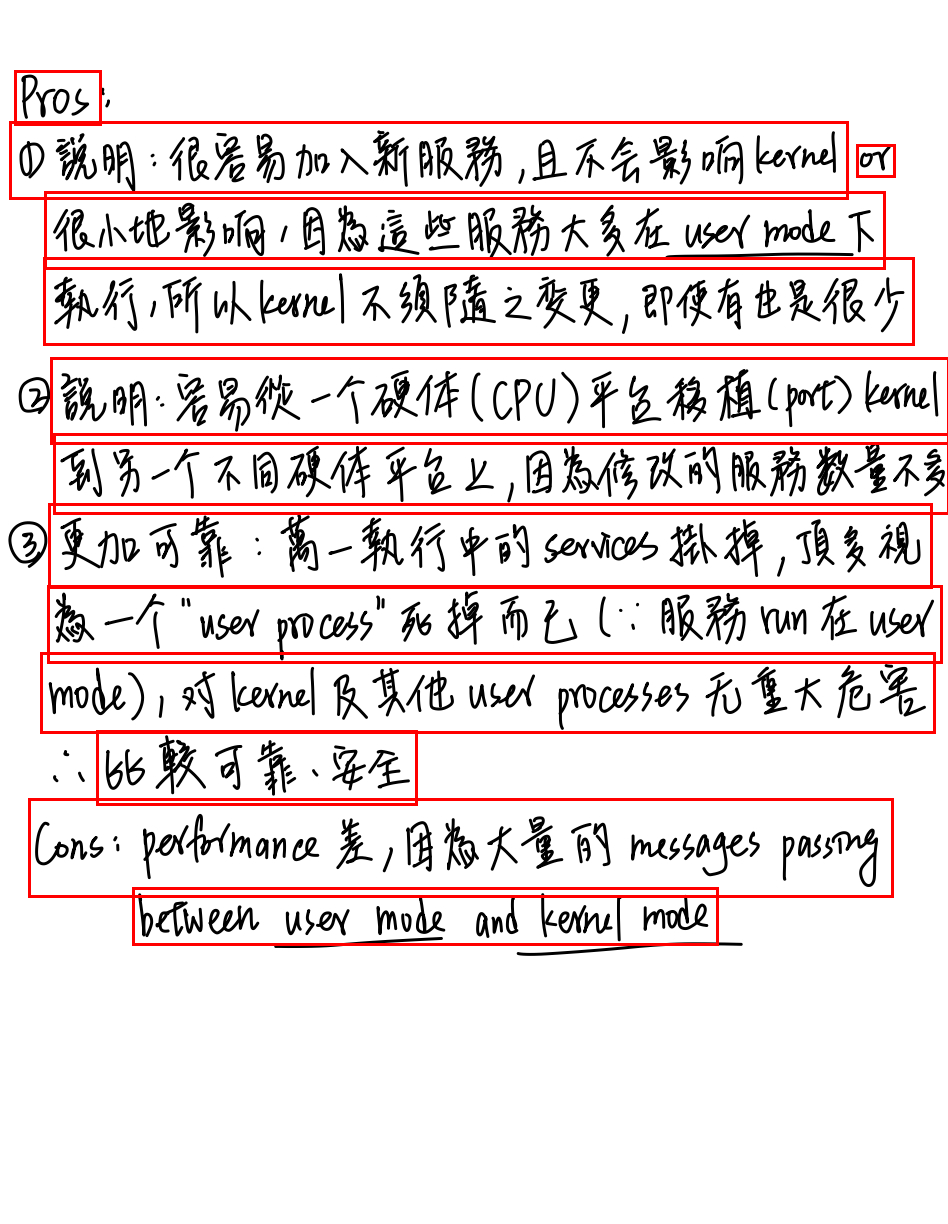 Pros:
① 說明:很容易加入新服務,且不会影响 kernel or
很小地影响,因為這些服務大多在 user mode 下
執行,所以 kernel 不須隨之变更,即使有也是很少
② 說明:容易從一个硬体(CPU)平台移植(port) kernel
到另一个不同硬体平台上,因為修改的服務数量不多
③ 更加可靠:萬一執行中的 services 掛掉,頂多視
為一个"user process"死掉而已(∵服務 run 在 user
mode),对 kernel 及其他 user processes 无重大危害
∴ 比較可靠、安全
Cons: performance 差,因為大量的 messages passing
between user mode and kernel mode